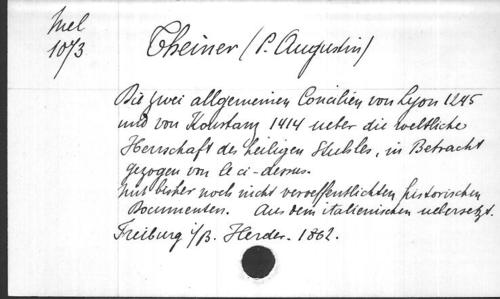 Mel
1073
Theiner (P. Augustin)
Die zwei allgemeinen Concilien von Lyon 1245
und von Konstanz 1414 ueber die weltliche
Herrschaft des heiligen Stuhles, in Betracht
gezogen von le ci-dessus.
Mit bisher noch nicht veroeffentlichten historischen
Documenten. Aus dem italienischen uebersetzt.
Freiburg i/B. Herder. 1862.